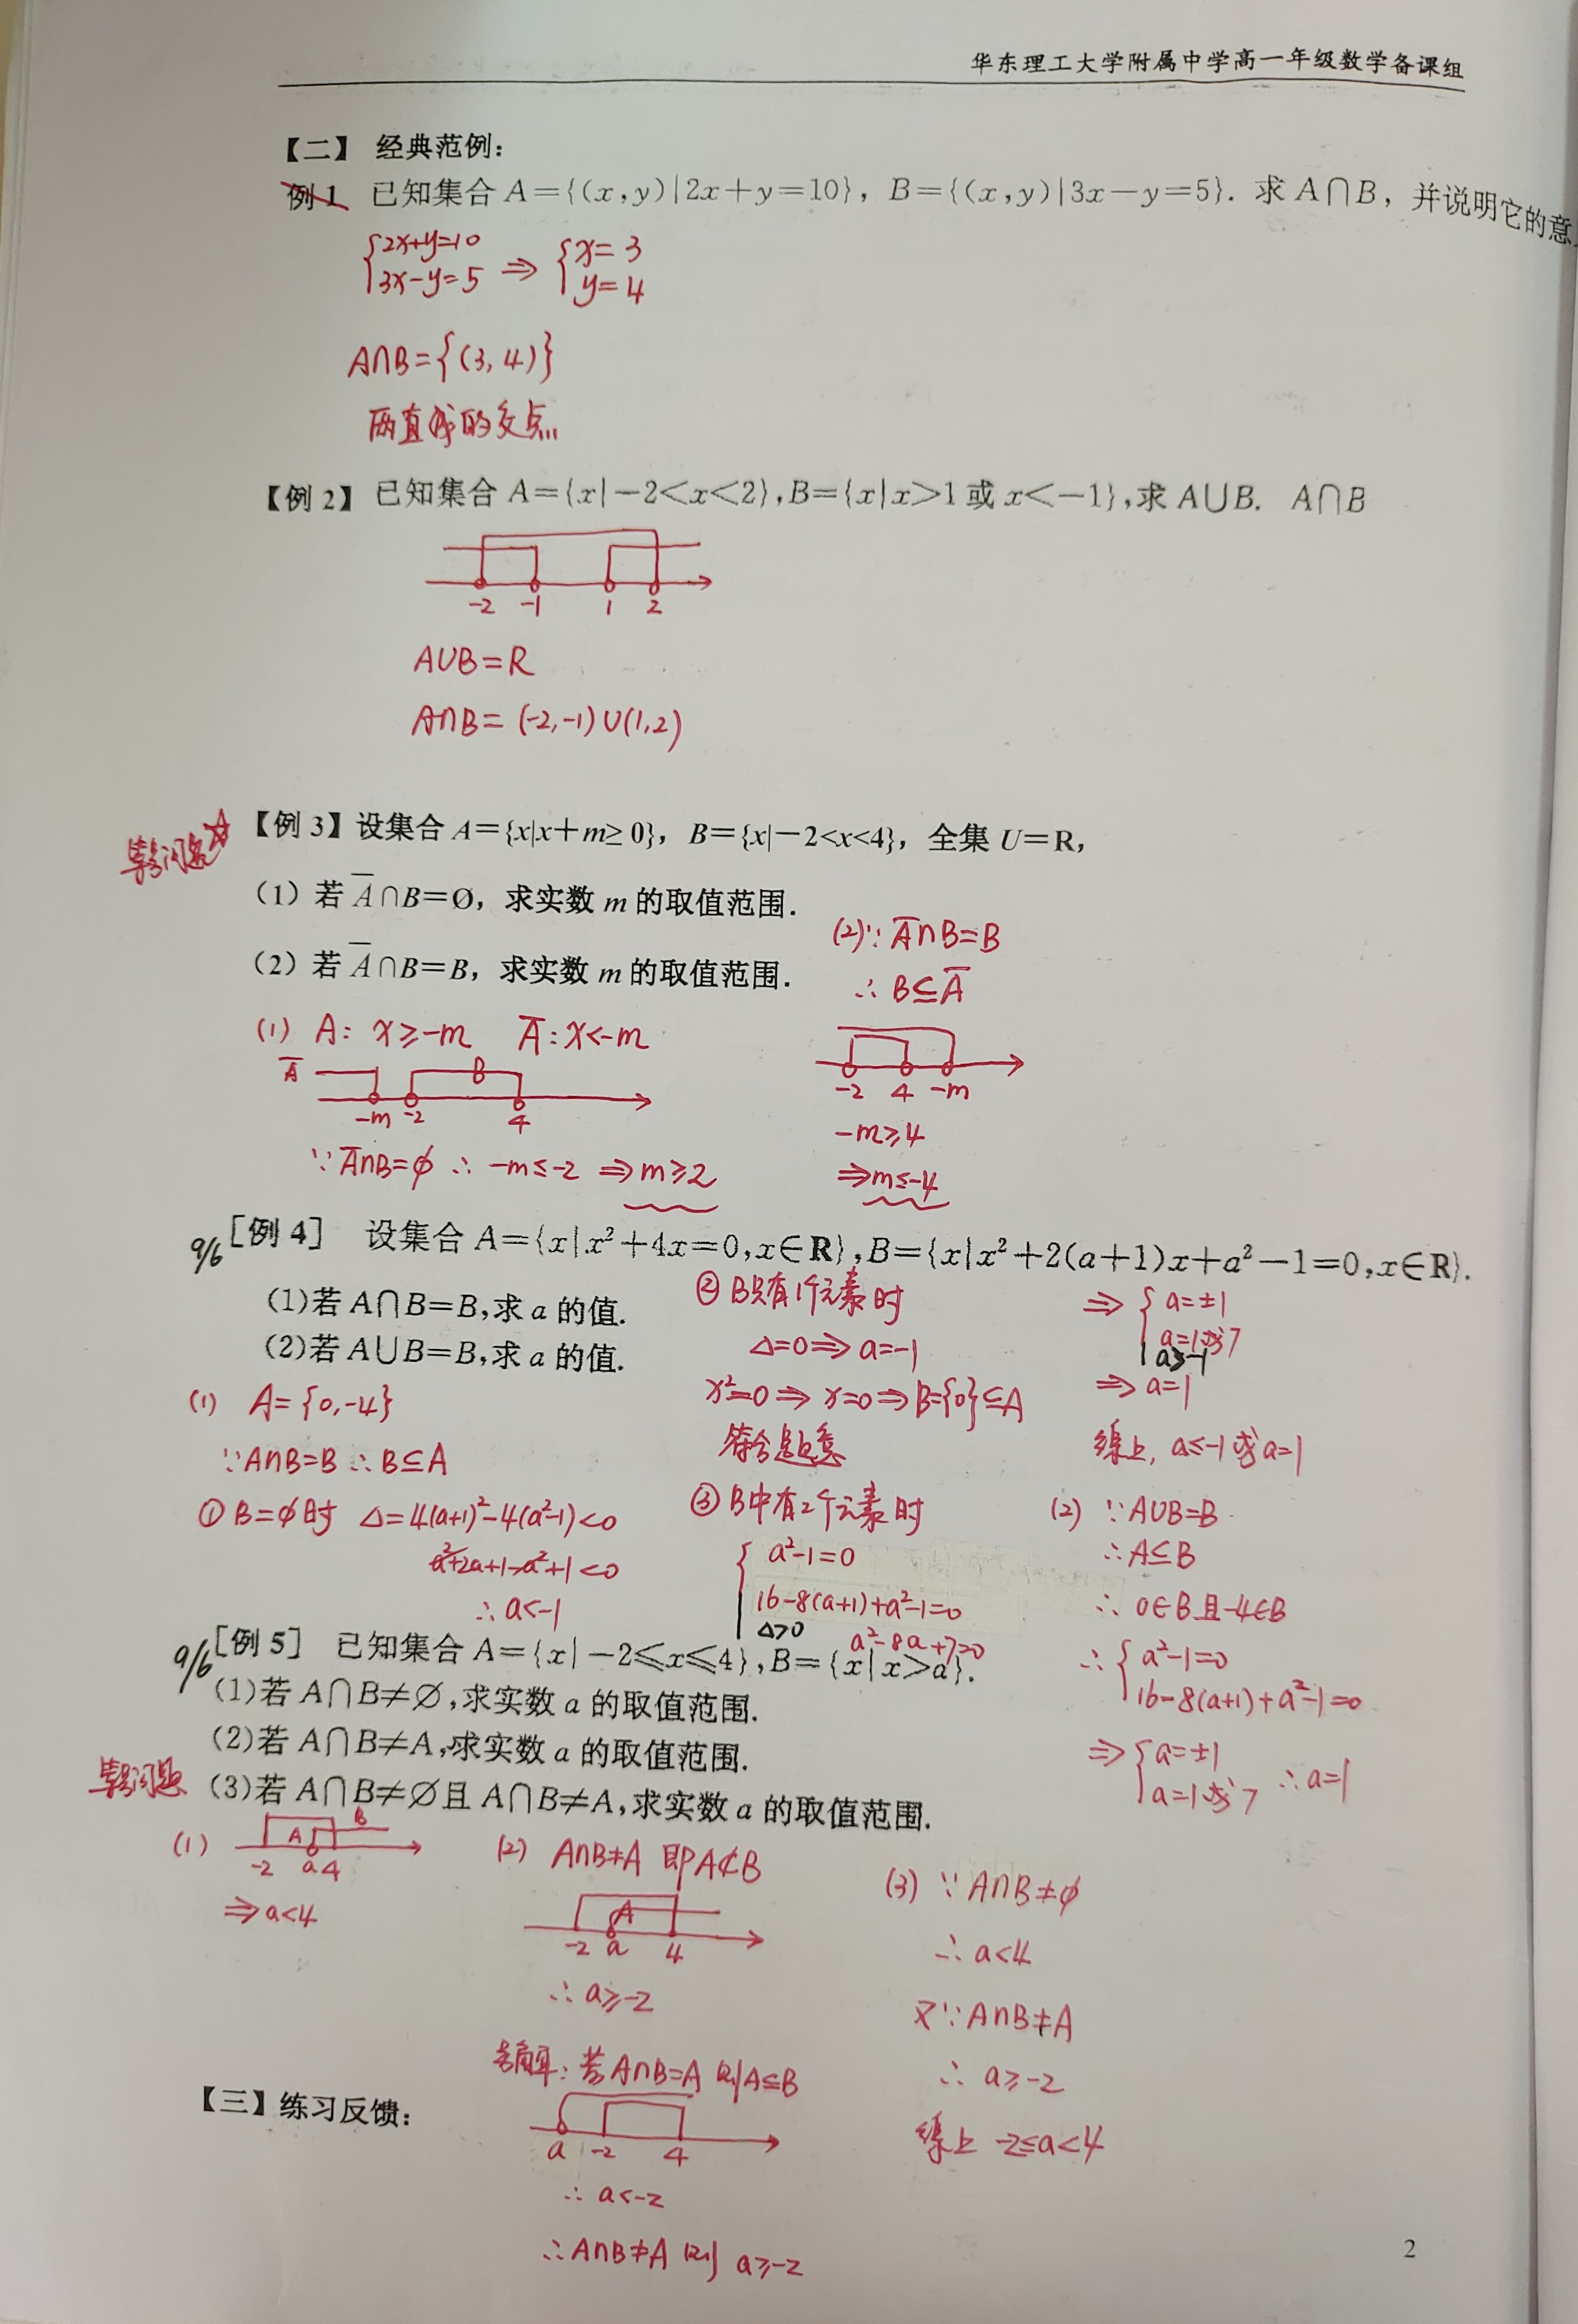 华东理工大学附属中学高一年级数学备课组
【二】 经典范例：
例1 已知集合 A={(x,y)|2x+y=10}，B={(x,y)|3x-y=5}. 求 A∩B，并说明它的意
{2x+y=10
3x-y=5 ⇒ {x=3
y=4
A∩B={(3,4)}
两直线的交点
【例2】已知集合 A={x|-2<x<2},B={x|x>1或x<-1},求 A∪B. A∩B
-2 -1 1 2
A∪B=R
A∩B=(-2,-1)∪(1,2)
【例3】设集合 A={x|x+m≥0}，B={x|-2<x<4}，全集 U=R，
端点问题☆
（1）若 A̅∩B=Ø，求实数 m 的取值范围.
（2）若 A̅∩B=B，求实数 m 的取值范围.
(1) A: x≥-m A̅: x<-m
A̅ B
-m -2 4
∵A̅∩B=∅ ∴ -m≤-2 ⇒m≥2
(2)∵ A̅∩B=B
∴ B⊆A̅
-2 4 -m
-m≥4
⇒m≤-4
9/6 [例4] 设集合 A={x|x²+4x=0,x∈R},B={x|x²+2(a+1)x+a²-1=0,x∈R}.
(1)若 A∩B=B,求 a 的值.
(2)若 A∪B=B,求 a 的值.
(1) A={0,-4}
∵A∩B=B ∴B⊆A
① B=∅时 Δ=4(a+1)²-4(a²-1)<0
a²+2a+1-a²+1<0
∴a<-1
② B只有1个元素时
Δ=0⇒a=-1
x²=0⇒x=0⇒B={0}⊆A
符合题意
③ B中有2个元素时
{a²-1=0
16-8(a+1)+a²-1=0
Δ>0 a²-8a+7=0
⇒{a=±1
a=1或7
a>-1
⇒a=1
综上, a≤-1或a=1
(2) ∵A∪B=B
∴A⊆B
∴ 0∈B且-4∈B
∴{a²-1=0
16-8(a+1)+a²-1=0
⇒{a=±1
a=1或7 ∴a=1
9/6 [例5] 已知集合 A={x|-2≤x≤4},B={x|x>a}.
(1)若 A∩B≠∅,求实数 a 的取值范围.
(2)若 A∩B≠A,求实数 a 的取值范围.
端点问题 (3)若 A∩B≠∅且 A∩B≠A,求实数 a 的取值范围.
(1) A B
-2 a 4
⇒a<4
(2) A∩B≠A 即A⊄B
A
-2 a 4
∴a≥-2
另解: 若A∩B=A 则A⊆B
a -2 4
∴ a<-2
∴A∩B≠A 则 a≥-2
(3) ∵A∩B≠∅
∴a<4
又∵A∩B≠A
∴ a≥-2
综上 -2≤a<4
【三】练习反馈：
2